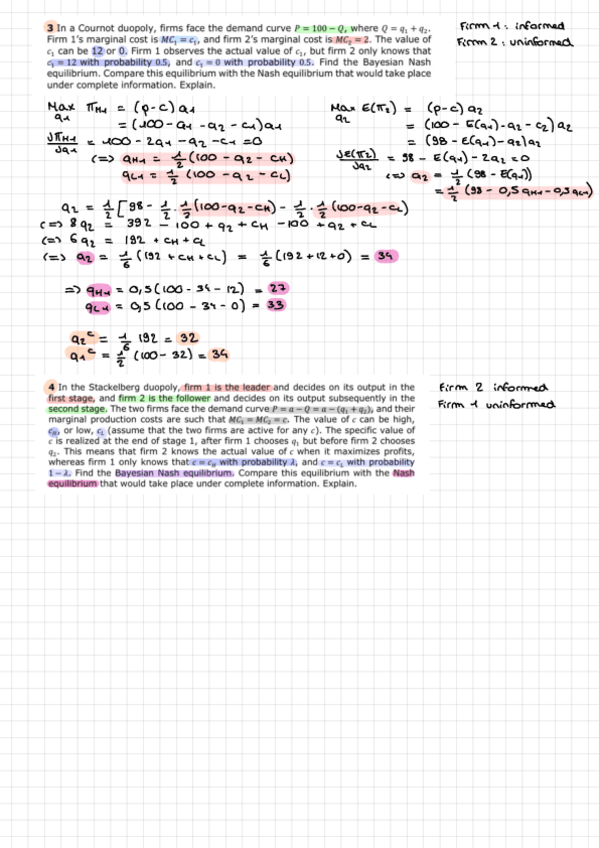 3 In a Cournot duopoly, firms face the demand curve P = 100 − Q, where Q = q₁ + q₂.
Firm 1's marginal cost is MC₁ = c₁, and firm 2's marginal cost is MC₂ = 2. The value of
c₁ can be 12 or 0. Firm 1 observes the actual value of c₁, but firm 2 only knows that
c₁ = 12 with probability 0.5, and c₁ = 0 with probability 0.5. Find the Bayesian Nash
equilibrium. Compare this equilibrium with the Nash equilibrium that would take place
under complete information. Explain.
Firm 1: informed
Firm 2: uninformed
Max πH1 = (p-c)q1
q1
= (100 - q1 - q2 - c1)q1
∂πH1/∂q1 = 100 - 2q1 - q2 - c1 = 0
(=) qH1 = 1/2 (100 - q2 - cH)
qL1 = 1/2 (100 - q2 - cL)
Max E(π2) = (p-c) q2
q2
= (100 - E(q1) - q2 - c2) q2
= (98 - E(q1) - q2) q2
∂E(π2)/∂q2 = 98 - E(q1) - 2q2 = 0
(=) q2 = 1/2 (98 - E(q1))
= 1/2 (98 - 0,5 qH1 - 0,5 qL1)
q2 = 1/2 [98 - 1/2 · 1/2 (100 - q2 - cH) - 1/2 · 1/2 (100 - q2 - cL)
(=) 8 q2 = 392 - 100 + q2 + cH - 100 + q2 + cL
(=) 6 q2 = 192 + cH + cL
(=) q2 = 1/6 (192 + cH + cL) = 1/6 (192 + 12 + 0) = 34
=> qH1 = 0,5 (100 - 34 - 12) = 27
qL1 = 0,5 (100 - 34 - 0) = 33
q2ᶜ = 1/6 192 = 32
q1ᶜ = 1/2 (100 - 32) = 34
4 In the Stackelberg duopoly, firm 1 is the leader and decides on its output in the
first stage, and firm 2 is the follower and decides on its output subsequently in the
second stage. The two firms face the demand curve P = a − Q = a − (q₁ + q₂), and their
marginal production costs are such that MC₁ = MC₂ = c. The value of c can be high,
c_H, or low, c_L (assume that the two firms are active for any c). The specific value of
c is realized at the end of stage 1, after firm 1 chooses q₁ but before firm 2 chooses
q₂. This means that firm 2 knows the actual value of c when it maximizes profits,
whereas firm 1 only knows that c = c_H with probability λ, and c = c_L with probability
1 − λ. Find the Bayesian Nash equilibrium. Compare this equilibrium with the Nash
equilibrium that would take place under complete information. Explain.
Firm 2 informed
Firm 1 uninformed